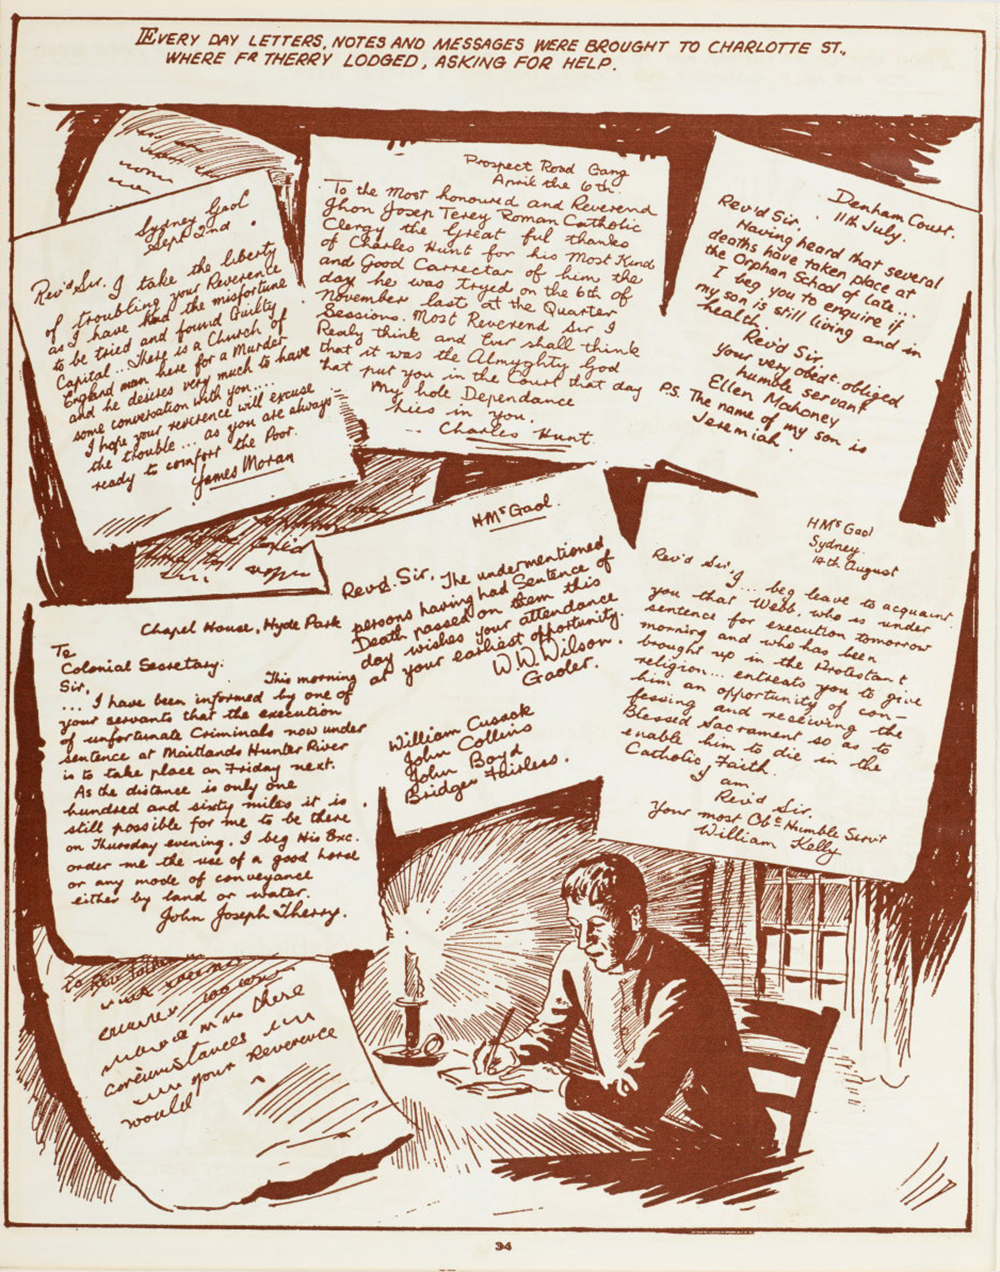 EVERY DAY LETTERS, NOTES AND MESSAGES WERE BROUGHT TO CHARLOTTE ST.,
WHERE FR THERRY LODGED, ASKING FOR HELP.
Sydney Gaol
Sept 2nd.
Rev'd Sir. I take the liberty
of troubling your Reverence
as I have had the misfortune
to be tried and found Guilty
Capital... There is a Church of
England man here for a Murder
and he desires very much to have
some conversation with you....
I hope your reverence will excuse
the trouble... as you are always
ready to comfort the Poor.
James Moran
Prospect Road Gang
April the 6th.
To the Most honoured and Reverend
Jhon Josep Terey Roman Catholic
Clergy the Great ful thanks
of Charles Hunt for his Most Kind
and Good Carrectar of him the
day he was tryed on the 6th of
November last at the Quarter
Sessions. Most Reverend Sir I
Realy think and Ever shall think
that it was the Almyghty God
that put you in the Court that day
My hole Dependance
hies in you.
-- Charles Hunt.
Denham Court.
11th July.
Rev'd Sir.
Having heard that several
deaths have taken place at
the Orphan School of late...
I beg you to enquire if
my son is still living and in
health.
Rev'd Sir
Your very obedt. obliged
humble servant
Ellen Mahoney
P.S. The name of my son is
Jeremiah.
HMs Gaol.
Revd. Sir, The undermentioned
persons having had Sentence of
Death passed on them this
day wishes your attendance
at your earliest opportunity.
W.W. Wilson.
Gaoler.
William Cusack
John Collins
John Boyd
Bridget Fairless.
HMs Gaol
Sydney.
14th August
Rev'd Sir, I... beg leave to acquaint
you that Webb, who is under
sentence for execution tomorrow
morning and who has been
brought up in the Protestant
religion... entreats you to give
him an opportunity of con-
fessing and receiving the
Blessed Sacrament so as to
enable him to die in the
Catholic Faith.
I am
Rev'd Sir.
Your most Obt Humble Servt
William Kelly
Chapel House, Hyde Park
To
Colonial Secretary.
Sir,
This morning
... I have been informed by one of
your servants that the execution
of unfortunate Criminals now under
sentence at Maitlands Hunter River
is to take place on Friday next.
As the distance is only one
hundred and sixty miles it is
still possible for me to be there
on Thursday evening. I beg His Exc.
order me the use of a good horse
or any mode of conveyance
either by land or water.
John Joseph Therry.
to Rev
there
circumstances
in your Reverence
would
34